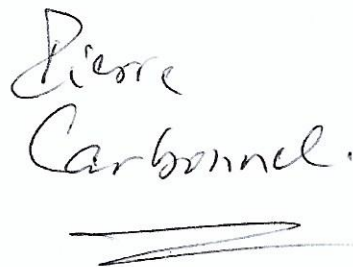 Pierre
Carbonnel.